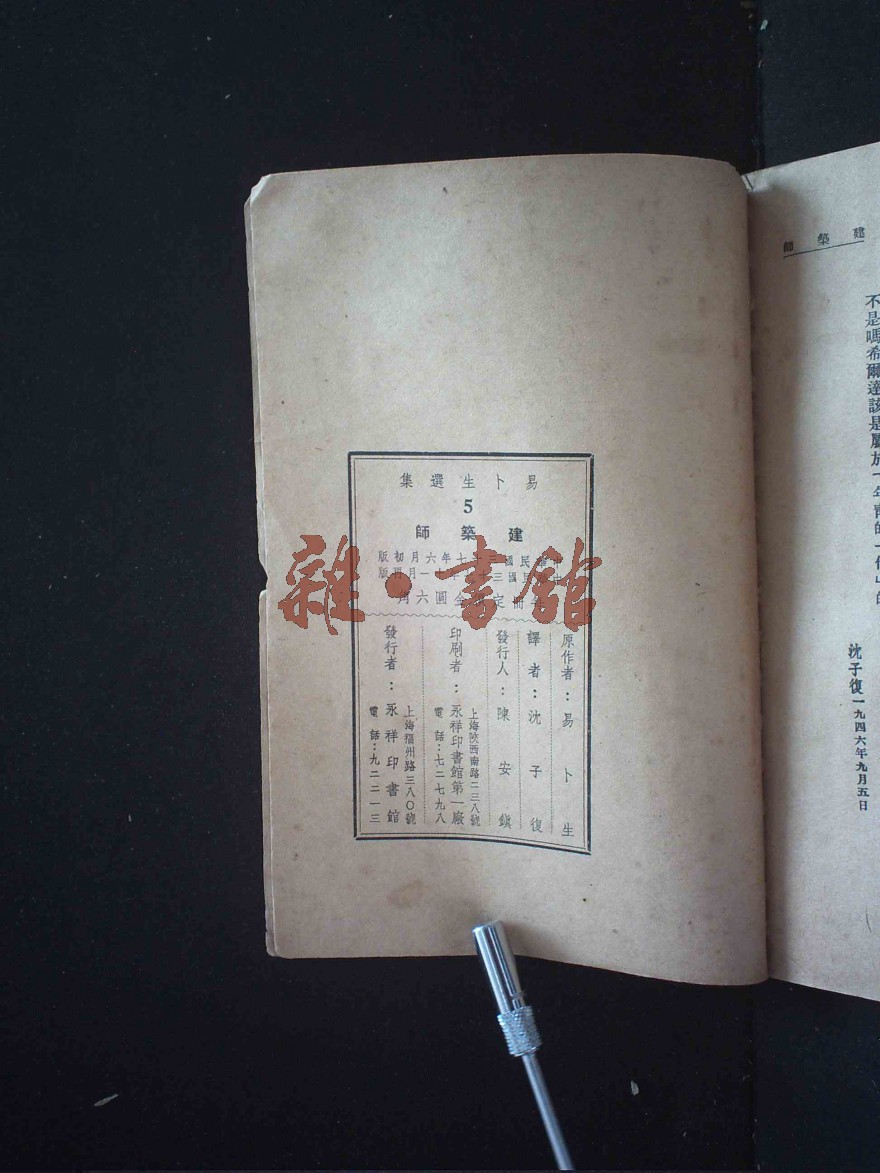 建築師
不是嗎希爾達該是屬於「年青的一代」的
沈子復一九四六年九月五日
易卜生選集
5
建築師
民國三十七年六月初版
國三 一月再版
定 金圓六角
原作者：易卜生
譯者：沈子復
發行人：陳安鎭
印刷者：永祥印書館第一廠
上海陝西南路二三八號
電話：七二七九八
發行者：永祥印書館
上海福州路三八〇號
電話：九二二一三
雜·書館